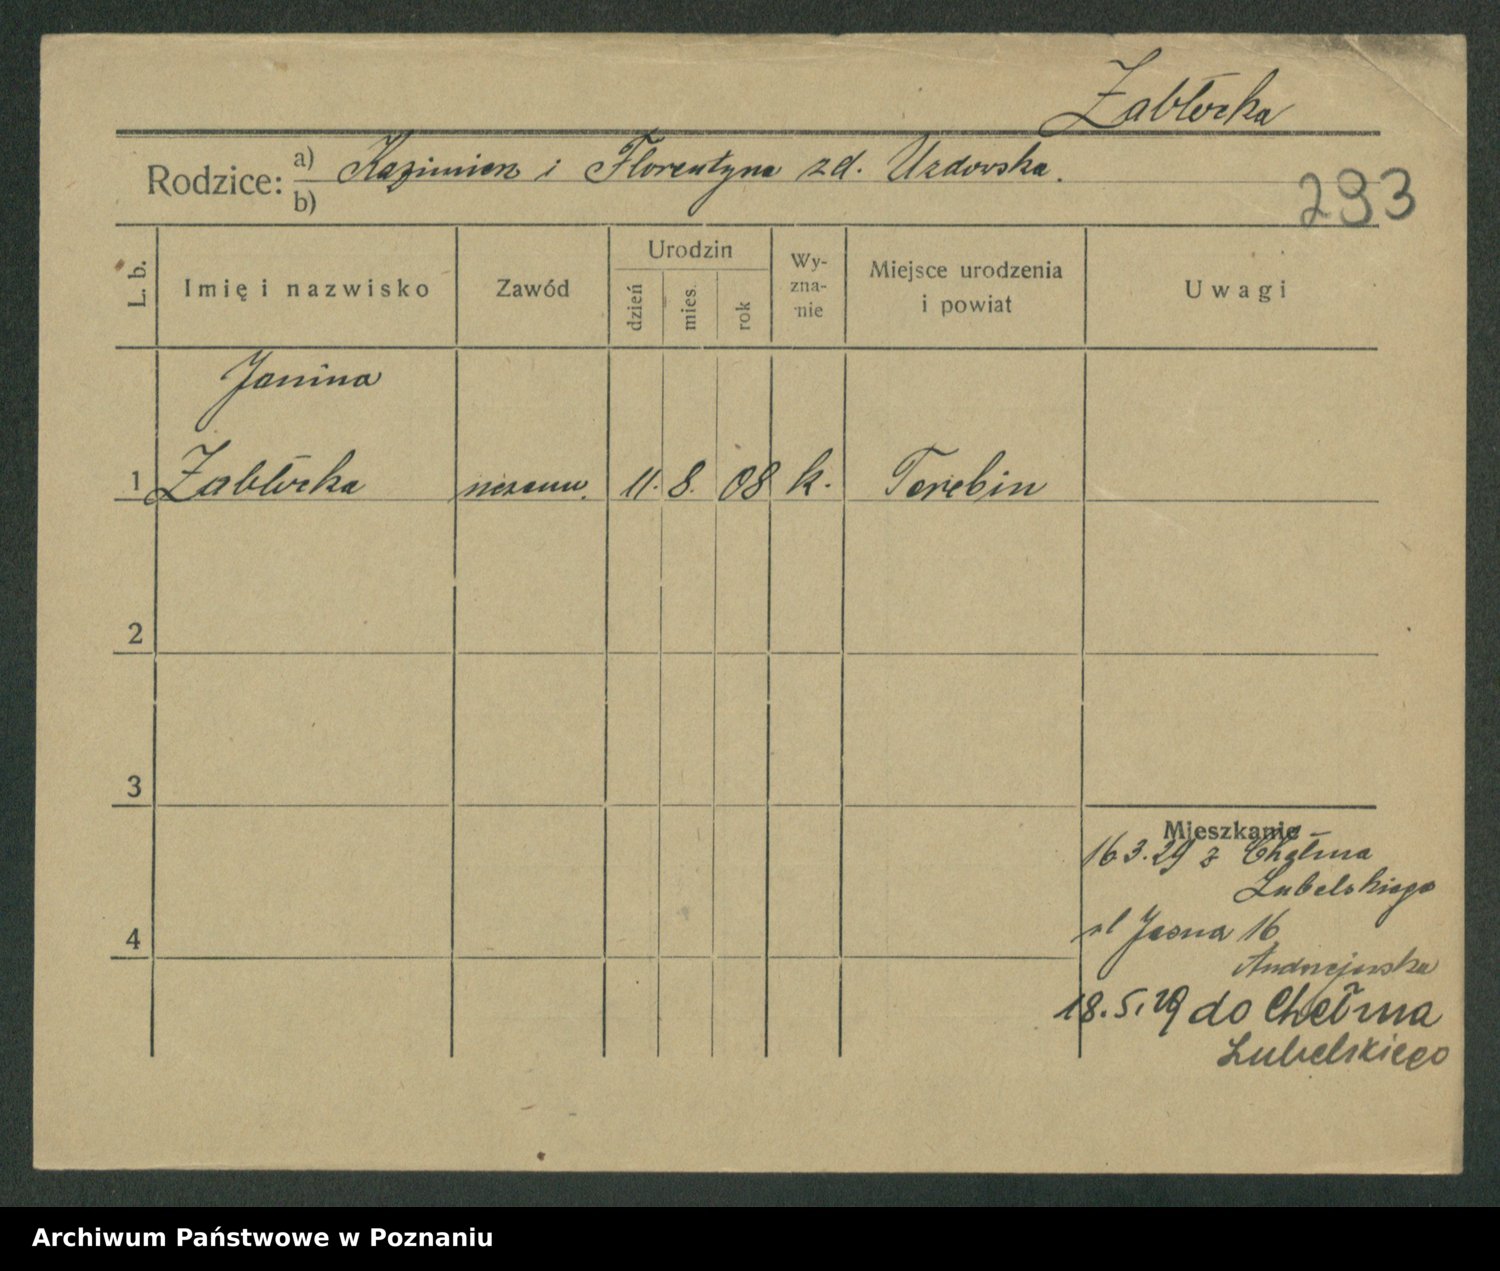 Zabłocka
Rodzice: a) Kazimierz i Florentyna zd. Uzdowska.
b)
293
L. b. Imię i nazwisko Zawód Urodzin dzień mies. rok Wy-zna-nie Miejsce urodzenia i powiat Uwagi
Janina
1 Zabłocka 11. 8. 08 k. Terebin
2
3
Mieszkanie
16 3. 29 z Chełma
Lubelskiego
4 ul Jasna 16
Andrzejewska
18. 5. 29 do Chełma
Lubelskiego
Archiwum Państwowe w Poznaniu